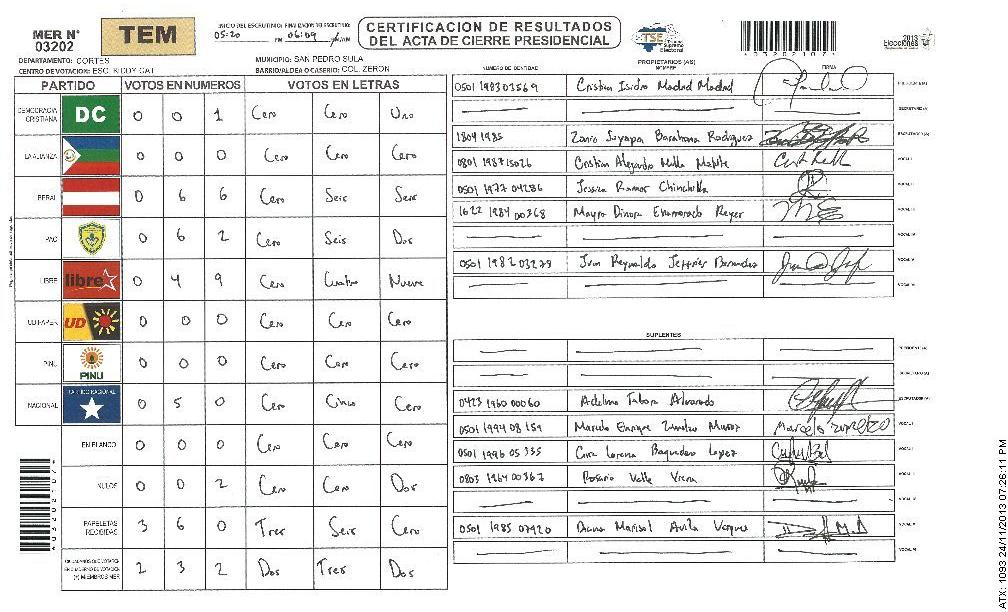 MER N° 03202
TEM
INICIO DEL ESCRUTINIO: 05:20 PM
FINALIZACION DEL ESCRUTINIO: 06:09
CERTIFICACION DE RESULTADOS
DEL ACTA DE CIERRE PRESIDENCIAL
TSE
Tribunal Supremo Electoral
2013
Elecciones
DEPARTAMENTO: CORTES
MUNICIPIO: SAN PEDRO SULA
CENTRO DE VOTACION: ESC. KIDDY CAT
BARRIO/ALDEA O CASERIO: COL. ZERON
PARTIDO VOTOS EN NUMEROS VOTOS EN LETRAS
DEMOCRACIA CRISTIANA DC 0 0 1 Cero Cero Uno
LA ALIANZA 0 0 0 Cero Cero Cero
BERAL 0 6 6 Cero Seis Seis
PAC 0 6 2 Cero Seis Dos
LIBRE libre 0 4 9 Cero Cuatro Nueve
UD FAPER UD 0 0 0 Cero Cero Cero
PINU PINU 0 0 0 Cero Cero Cero
NACIONAL PARTIDO NACIONAL 0 5 0 Cero Cinco Cero
EN BLANCO 0 0 0 Cero Cero Cero
NULOS 0 0 2 Cero Cero Dos
PAPELETAS RECIBIDAS 3 6 0 Tres Seis Cero
(+) MIEMBROS MER 2 3 2 Dos Tres Dos
PROPIETARIOS (AS)
NUMERO DE IDENTIDAD NOMBRE FIRMA
0501 198303569 Cristian Isidro Madrid Madrid
SECRETARIO (A)
1804 1985 Barahona Rodriguez ESCRUTADOR (A)
0801 198715026 Cristian Alejandro VOCAL I
0501 1977 04286 Jessica Ramos Chinchilla
1622 1984 00368 Mayra Dinora Enamorado Reyes
VOCAL IV
0501 1982 03279 Juan Reynaldo Jeffries Bermudez VOCAL V
SUPLENTES
PRESIDENTE (A)
SECRETARIO (A)
0423 1960 00060 Adelina Tabora Alvarado ESCRUTADOR (A)
0501 1994 08159 Marcelo Enrique Munoz
0501 1996 05335 Lorena Baquedano Lopez
0803 1964 00367 Rosario Valle
0501 1985 07920 Diana Marisol Avila Vasquez
ATX: 1093 24/11/2013 07:26:11 PM